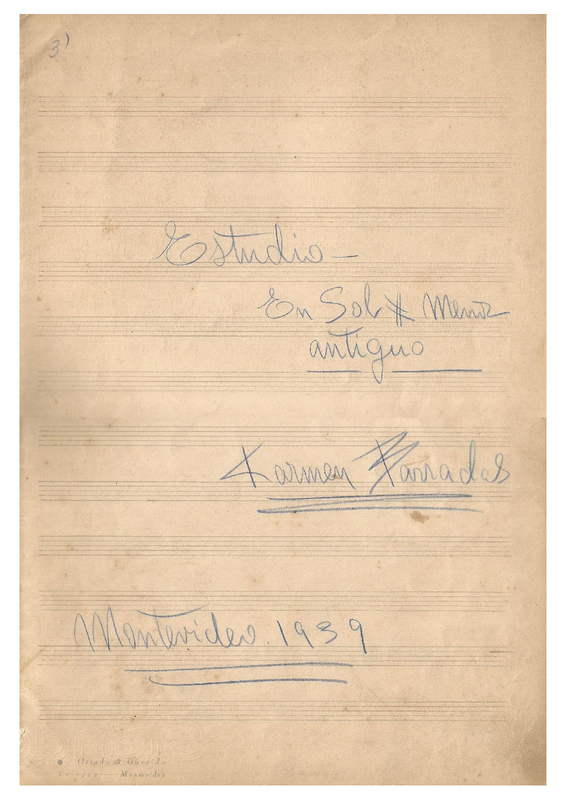 3'
Estudio —
En Sol # Menor
antiguo
Karmen Barradas
Montevideo 1939
Montevideo